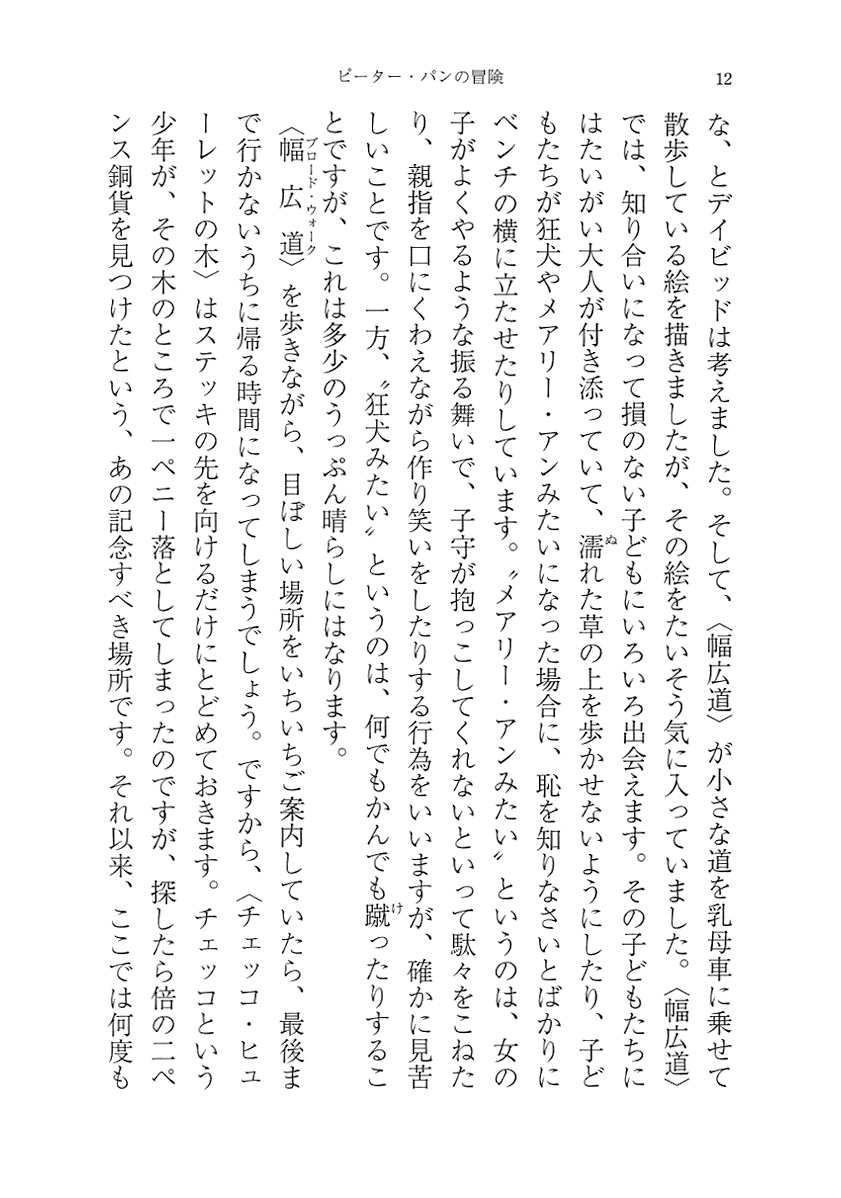 ピーター・パンの冒険
12
な、とデイビッドは考えました。そして、〈幅広道〉が小さな道を乳母車に乗せて
散歩している絵を描きましたが、その絵をたいそう気に入っていました。〈幅広道〉
では、知り合いになって損のない子どもにいろいろ出会えます。その子どもたちに
はたいがい大人が付き添っていて、濡れた草の上を歩かせないようにしたり、子ど
もたちが狂犬やメアリー・アンみたいになった場合に、恥を知りなさいとばかりに
ベンチの横に立たせたりしています。〝メアリー・アンみたい〟というのは、女の
子がよくやるような振る舞いで、子守が抱っこしてくれないといって駄々をこねた
り、親指を口にくわえながら作り笑いをしたりする行為をいいますが、確かに見苦
しいことです。一方、〝狂犬みたい〟というのは、何でもかんでも蹴ったりするこ
とですが、これは多少のうっぷん晴らしにはなります。
〈幅広道〉を歩きながら、目ぼしい場所をいちいちご案内していたら、最後ま
で行かないうちに帰る時間になってしまうでしょう。ですから、〈チェッコ・ヒュ
ーレットの木〉はステッキの先を向けるだけにとどめておきます。チェッコという
少年が、その木のところで一ペニー落としてしまったのですが、探したら倍の二ペ
ンス銅貨を見つけたという、あの記念すべき場所です。それ以来、ここでは何度も
ぬ
け
ブロード・ウォーク